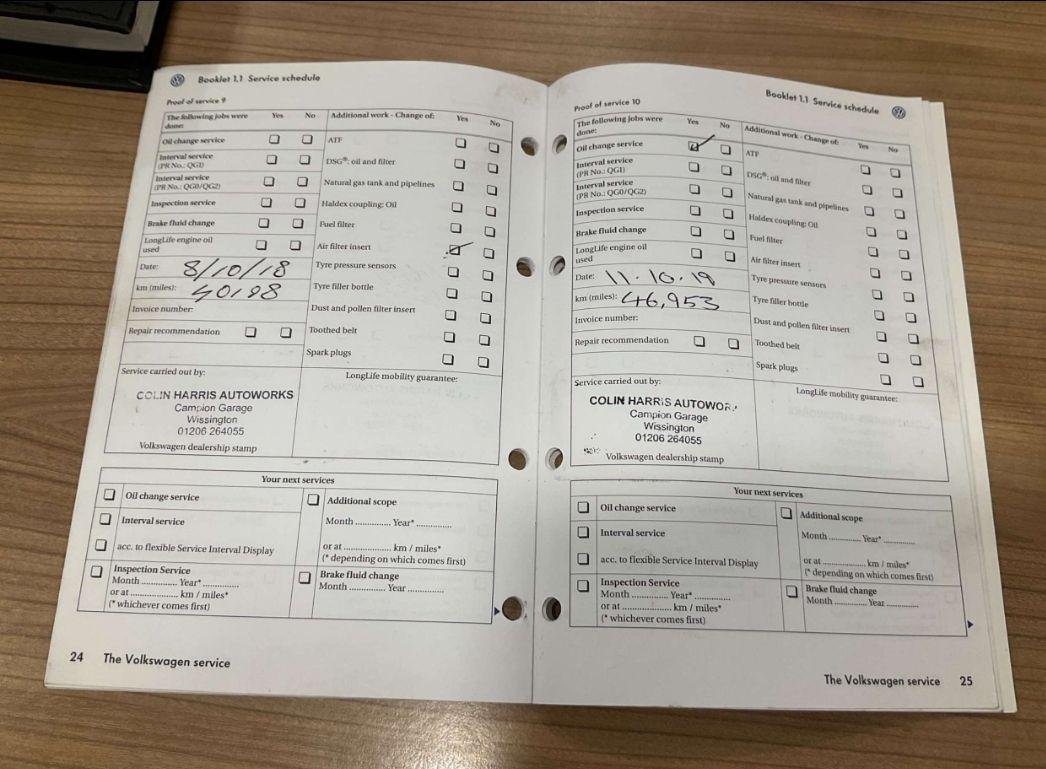 Booklet 1.1 Service schedule
Proof of service 9
The following jobs were done: Yes No
Oil change service
Interval service (PR No.: QG1)
Interval service (PR No.: QG0/QG2)
Inspection service
Brake fluid change
LongLife engine oil used
Date: 8/10/18
km (miles): 40198
Invoice number:
Repair recommendation
Additional work - Change of: Yes No
ATF
DSG®: oil and filter
Natural gas tank and pipelines
Haldex coupling: Oil
Fuel filter
Air filter insert
Tyre pressure sensors
Tyre filler bottle
Dust and pollen filter insert
Toothed belt
Spark plugs
Service carried out by:
COLIN HARRIS AUTOWORKS
Campion Garage
Wissington
01206 264055
Volkswagen dealership stamp
LongLife mobility guarantee:
Your next services
Oil change service
Interval service
acc. to flexible Service Interval Display
Inspection Service
Month .............. Year* ..............
or at .................... km / miles*
(* whichever comes first)
Additional scope
Month .............. Year* ..............
or at .................... km / miles*
(* depending on which comes first)
Brake fluid change
Month .............. Year ..............
24 The Volkswagen service
Booklet 1.1 Service schedule
Proof of service 10
The following jobs were done: Yes No
Oil change service
Interval service (PR No.: QG1)
Interval service (PR No.: QG0/QG2)
Inspection service
Brake fluid change
LongLife engine oil used
Date: 11.10.19
km (miles): 46,953
Invoice number:
Repair recommendation
Additional work - Change of: Yes No
ATF
DSG®: oil and filter
Natural gas tank and pipelines
Haldex coupling: Oil
Fuel filter
Air filter insert
Tyre pressure sensors
Tyre filler bottle
Dust and pollen filter insert
Toothed belt
Spark plugs
Service carried out by:
COLIN HARRIS AUTOWOR
Campion Garage
Wissington
01206 264055
Volkswagen dealership stamp
LongLife mobility guarantee:
Your next services
Oil change service
Interval service
acc. to flexible Service Interval Display
Inspection Service
Month .............. Year* ..............
or at .................... km / miles*
(* whichever comes first)
Additional scope
Month .............. Year* ..............
or at .................... km / miles*
(* depending on which comes first)
Brake fluid change
Month .............. Year ..............
The Volkswagen service 25